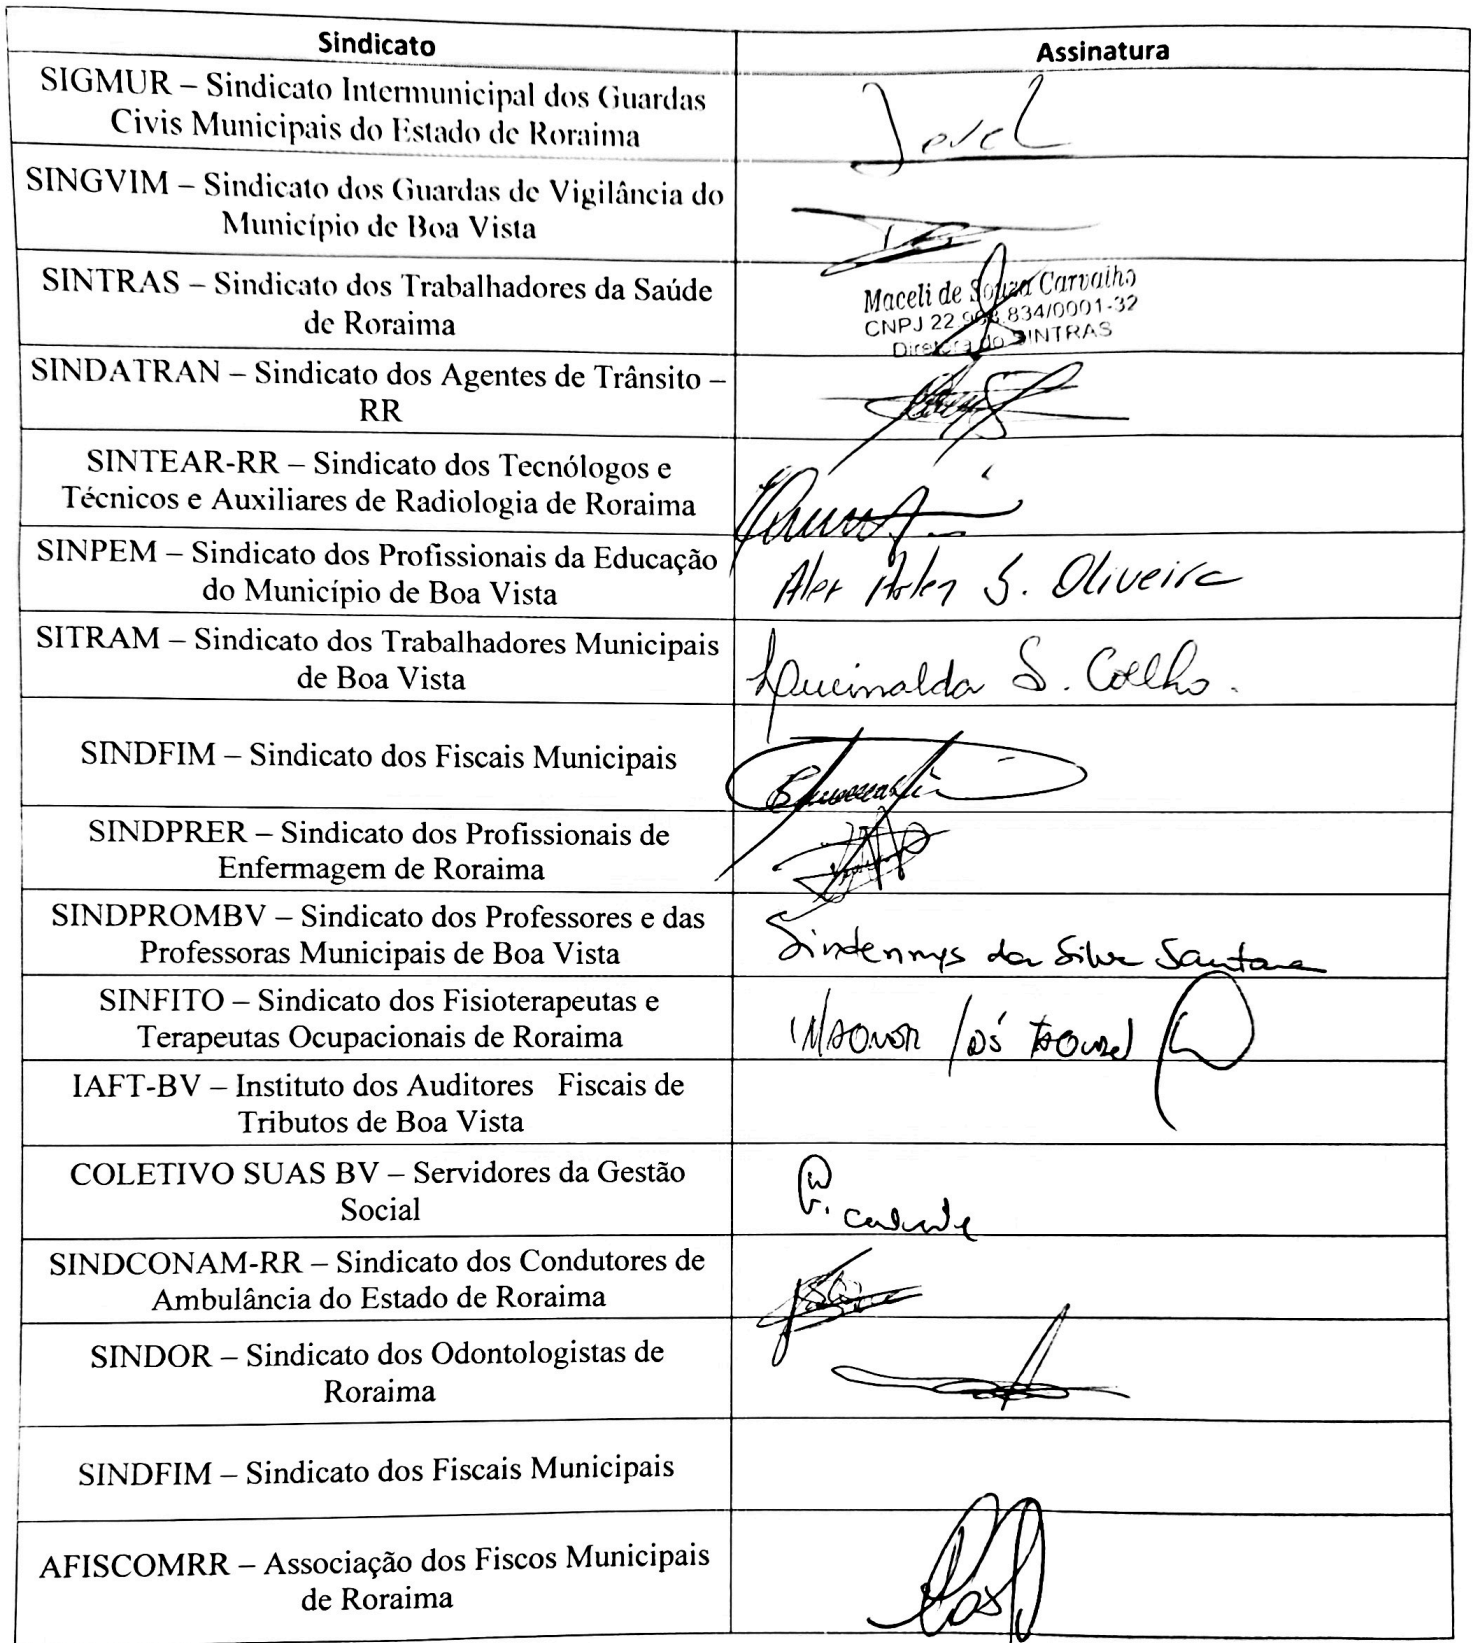 Sindicato
Assinatura
SIGMUR – Sindicato Intermunicipal dos Guardas
Civis Municipais do Estado de Roraima
SINGVIM – Sindicato dos Guardas de Vigilância do
Município de Boa Vista
SINTRAS – Sindicato dos Trabalhadores da Saúde
de Roraima
Maceli de Souza Carvalho
CNPJ 22.908.834/0001-32
Diretora do SINTRAS
SINDATRAN – Sindicato dos Agentes de Trânsito –
RR
SINTEAR-RR – Sindicato dos Tecnólogos e
Técnicos e Auxiliares de Radiologia de Roraima
SINPEM – Sindicato dos Profissionais da Educação
do Município de Boa Vista
S. Oliveira
SITRAM – Sindicato dos Trabalhadores Municipais
de Boa Vista
S. Coelho.
SINDFIM – Sindicato dos Fiscais Municipais
SINDPRER – Sindicato dos Profissionais de
Enfermagem de Roraima
SINDPROMBV – Sindicato dos Professores e das
Professoras Municipais de Boa Vista
Sindennys da Silva Santana
SINFITO – Sindicato dos Fisioterapeutas e
Terapeutas Ocupacionais de Roraima
IAFT-BV – Instituto dos Auditores Fiscais de
Tributos de Boa Vista
COLETIVO SUAS BV – Servidores da Gestão
Social
SINDCONAM-RR – Sindicato dos Condutores de
Ambulância do Estado de Roraima
SINDOR – Sindicato dos Odontologistas de
Roraima
SINDFIM – Sindicato dos Fiscais Municipais
AFISCOMRR – Associação dos Fiscos Municipais
de Roraima